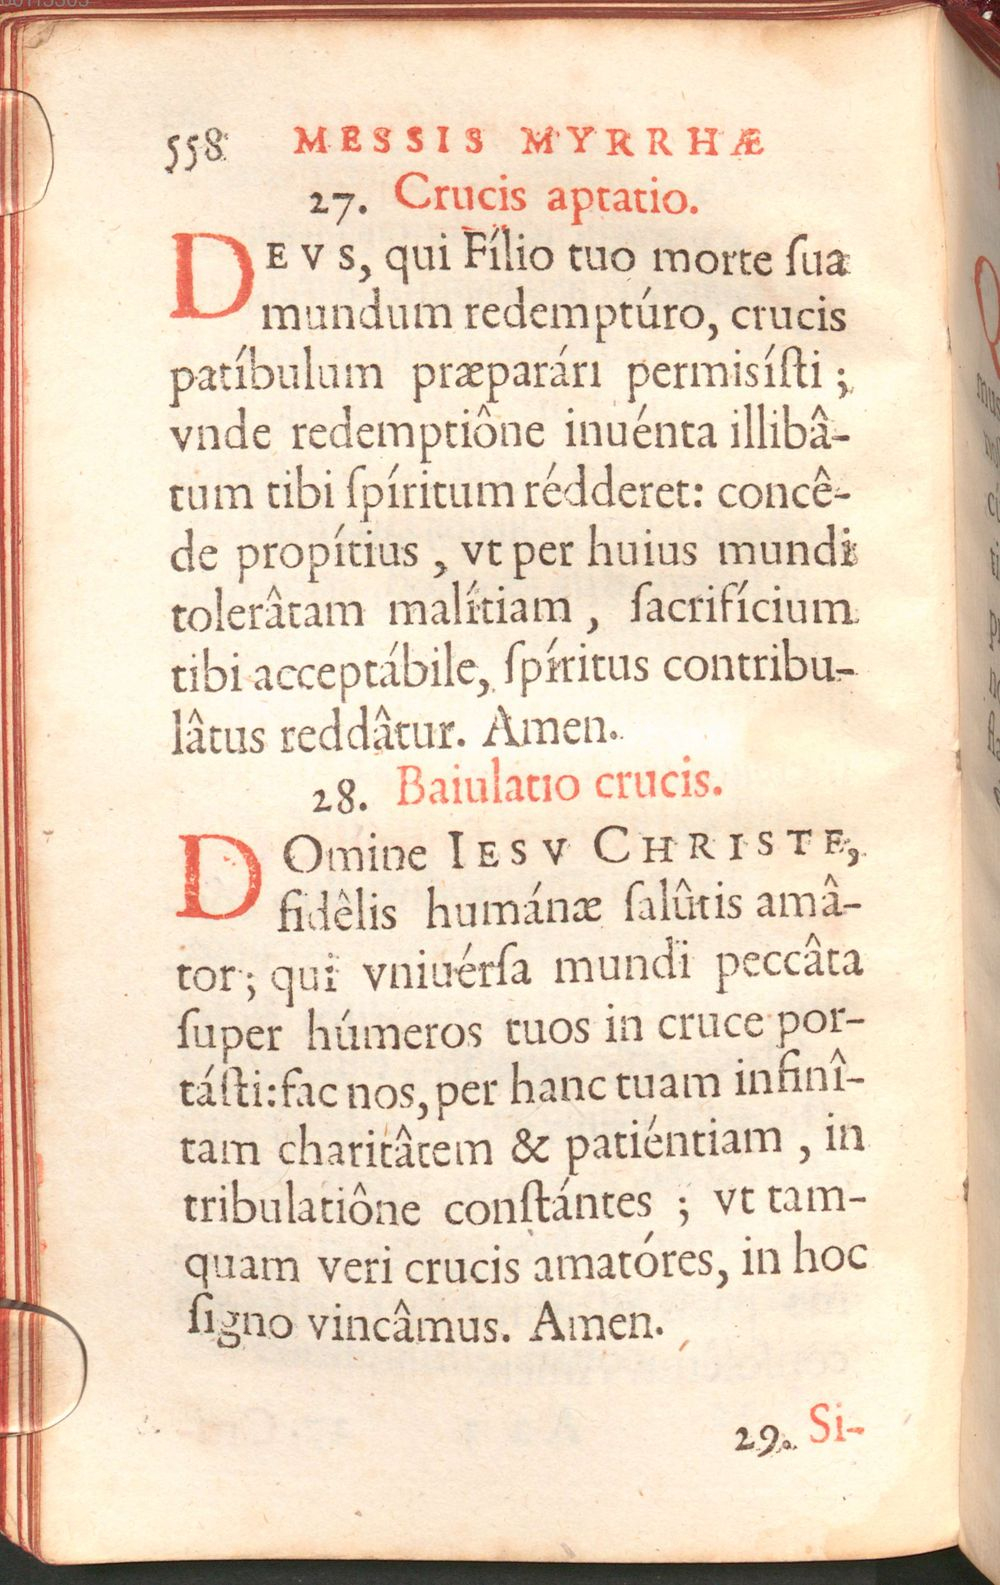 558 MESSIS MYRRHÆ
27. Crucis aptatio.
DEVS, qui Fílio tuo morte ſua
mundum redemptúro, crucis
patíbulum præparári permisíſti ;
vnde redemptiône inuénta illibâ-
tum tibi ſpíritum rédderet: concê-
de propítius , vt per huius mundi
tolerâtam malítiam , ſacrifícium
tibi acceptábile, ſpíritus contribu-
lâtus reddâtur. Amen.
28. Baiulatio crucis.
DOmine IESV CHRISTE,
fidêlis humánæ ſalûtis amâ-
tor; qui vniuérſa mundi peccâta
ſuper húmeros tuos in cruce por-
táſti: fac nos, per hanc tuam infinî-
tam charitâtem & patiéntiam , in
tribulatiône conſtántes ; vt tam-
quam veri crucis amatóres, in hoc
ſigno vincâmus. Amen.
29. Si-